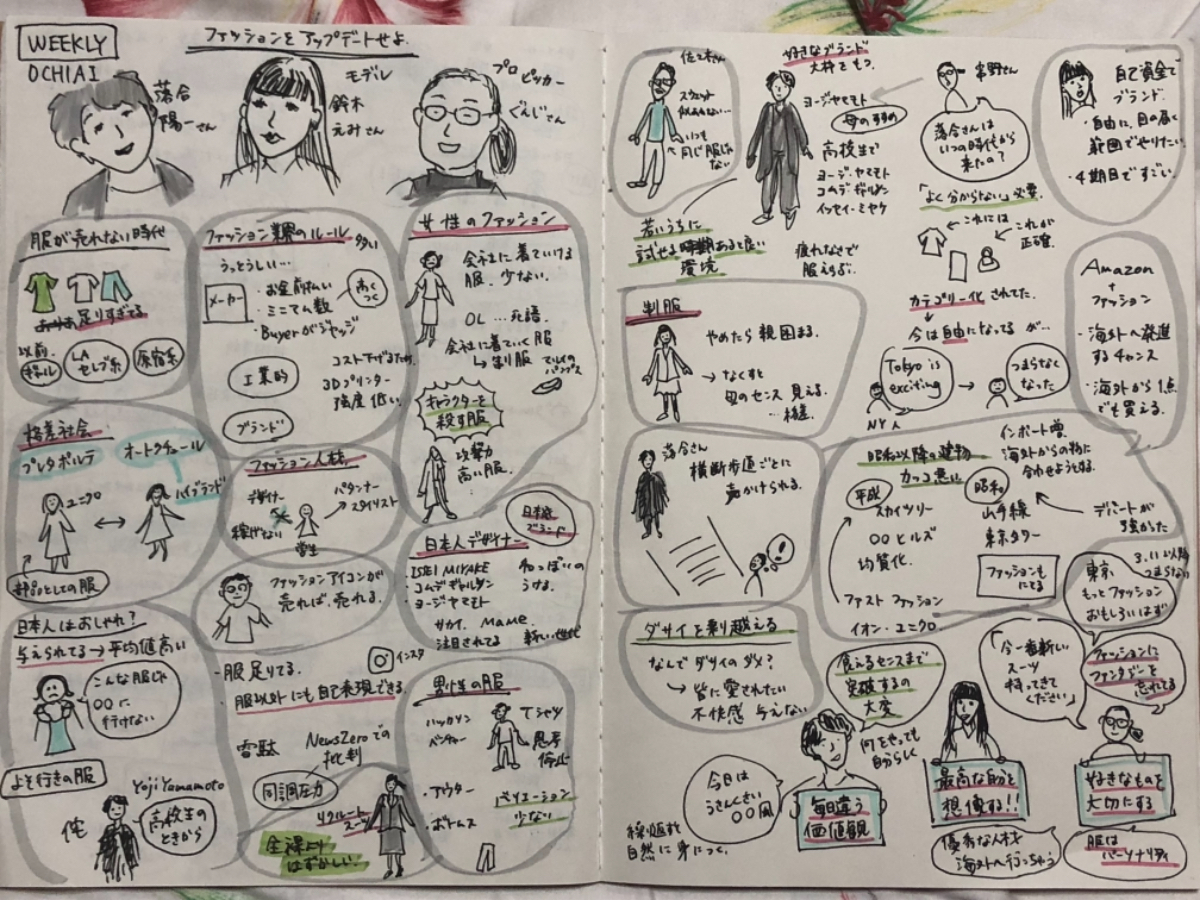 WEEKLY
OCHIAI
ファッションをアップデートせよ.
落合
陽一さん
モデル
鈴木
えみさん
プロピッカー
ぐんじさん
服が売れない時代
足りすぎてる
以前.
ギャル
LA
セレブ系
原宿系
ファッション業界のルール 多い
うっとうしい…
メーカー
・お金前払い
・ミニマム数
・Buyerがジャッジ
高く
つく
工業的
コスト下げるため.
3Dプリンター
強度 低い.
ブランド
女性のファッション
会社に着ていける
服. 少ない.
OL … 死語.
会社に着ていく服
↳ 制服
パンプス
キャラクターを
殺す服
攻撃力
高い服.
格差社会
プレタポルテ
オートクチュール
ユニクロ
ハイブランド
部品としての服
ファッション人材
デザイナー
稼げない
パタンナー
スタイリスト
学生
ファッションアイコンが
売れば. 売れる.
日本発
ブランド
日本人デザイナー
・ISEI MIYAKE
・コムデギャルソン
・ヨージヤマモト
和っぽいの
うける.
サカイ. MAME.
注目されてる
新しい世代
日本人はおしゃれ?
与えられてる→平均値高い
こんな服じゃ
〇〇に
行けない
よそ行きの服
Yoji Yamamoto
侘
高校生の
ときから
・服足りてる.
インスタ
服以外にも自己表現できる.
雪駄
NewsZeroでの
批判
同調圧力
リクルート
スーツ
全裸より
はずかしい.
男性の服
ハッカソン
ベンチャー
Tシャツ
思考
停止
・アウター
・ボトムス
バリエーション
少ない
佐々木さん
スウェット
いつも
同じ服じゃ
ない
好きなブランド
大枠をもつ.
ヨージヤマモト
母のすすめ
高校生で
ヨージヤマモト
コムデギャルソン
イッセイ・ミヤケ
若いうちに
試せる時期あると良い
環境
疲れなさで
服えらぶ.
落合さんは
いつの時代から
来たの?
「よく分からない」必要.
これには
これが
正確.
カテゴリー化されてた.
今は自由になってるが…
Tokyo is
exciting
つまらなく
なった
NY人
自己資金で
ブランド.
・自由に、目の届く
範囲でやりたい.
・4期目ですごい.
Amazon
+
ファッション
・海外へ発進
するチャンス
・海外から1点
でも買える.
制服
やめたら 親 困まる.
→ なくすと
母のセンス 見える.
落合さん
横断歩道ごとに
声かけられる.
昭和以降の建物
カッコ悪い
平成
スカイツリー
〇〇ヒルズ
均質化.
ファストファッション
イオン・ユニクロ.
昭和
山手線
東京タワー
インポート増.
海外からの物に
合わせようとする.
デパートが
強かった
ファッションも
にてる
3.11以降
つまらない
東京
もっとファッション
おもしろいはず
ダサイを乗り越える
なんでダサイのダメ?
→ 皆に愛されたい
不快感 与えない
食えるセンスまで
突破するの
大変
何をやっても
自分らしく
「今一番新しい
スーツ
持ってきて
ください」
ファッションに
ファンタジーを
忘れてる
今日は
うさんくさい
〇〇風
毎日違う
価値観
最高な自分を
想像する!!
好きなものを
大切にする
繰り返すと
自然に身につく.
優秀な人材
海外へ行っちゃう
服は
パーソナリティ